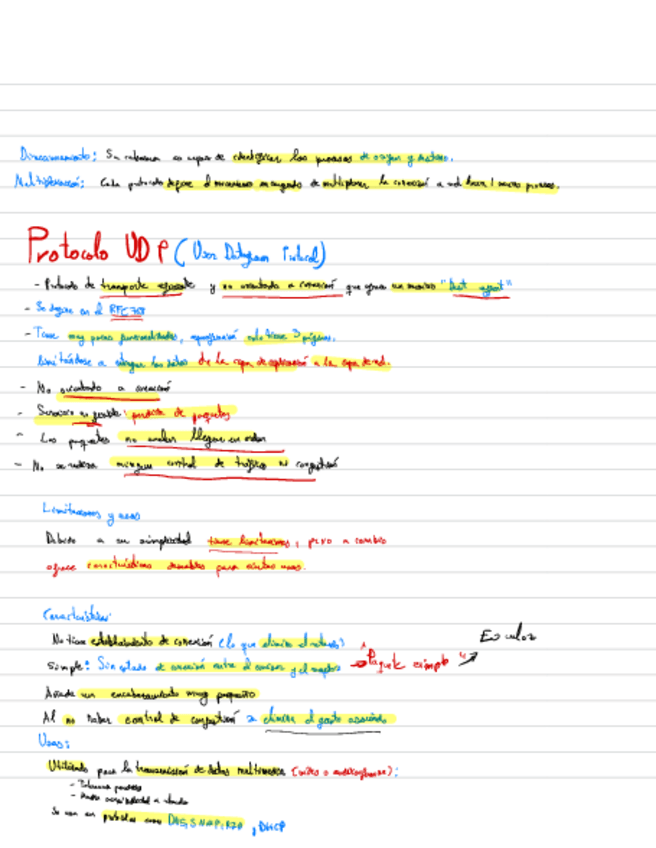 Direccionamiento: Su cabecera es capaz de identificar los procesos de origen y destino.
Multiplexación: Cada protocolo define el mecanismo encargado de multiplexar la conexión a nivel
Protocolo UDP (User Datagram Protocol)
- Protocolo de transporte y no orientado a conexión que un servicio "best
- Se define en el RFC 768
- Tiene muy pocas funcionalidades, solo tiene 3 páginas.
limitándose a los datos de la capa de aplicación a la capa de red.
- No orientado a conexión
- Servicio no fiable: perdida de paquetes
- Los paquetes no suelen llegar en orden
- No se realiza ningun control de trafico ni congestión
Limitaciones y usos
Debido a su simplicidad tiene limitaciones, pero a cambio
ofrece características deseables para ciertos usos.
Características:
No tiene establecimiento de conexión (lo que elimina el retraso)
Simple: Sin estado de conexión entre el emisor y el receptor Paquete simple Es veloz
Añade un encabezamiento muy pequeño
Al no haber control de congestión se elimina el gasto asociado
Usos:
Utilizado para la transmisión de datos multimedia (video o audio):
- Tolerancia
Se usa en protocolos como DNS, SNMP, , DHCP